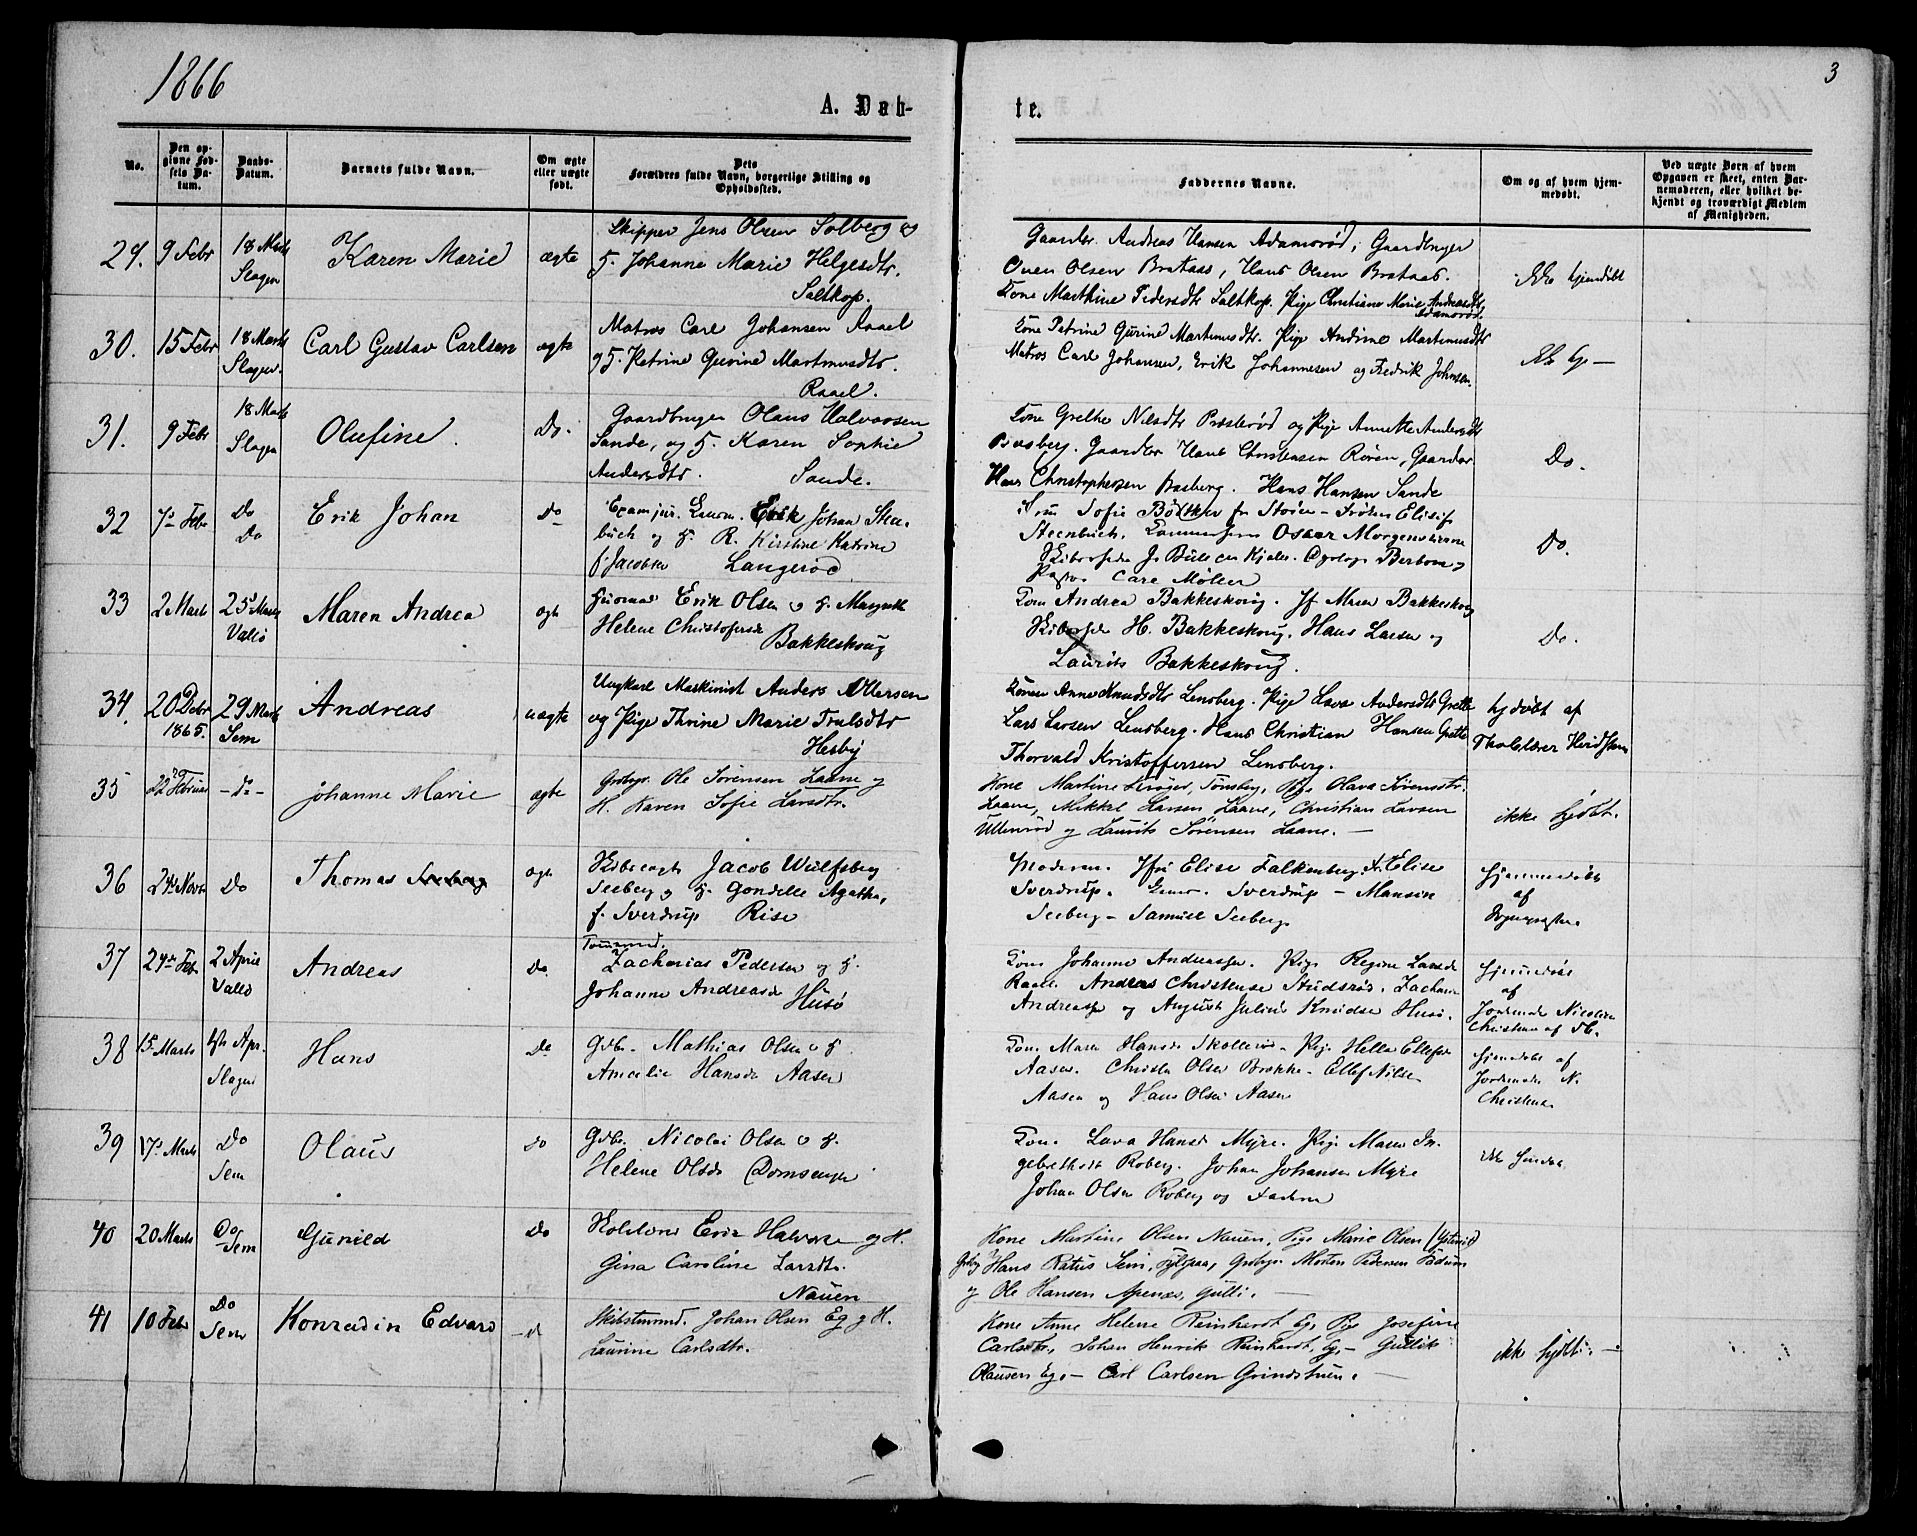 1866
3
A. Døb-
te.
No.
Den op-
givne Fød-
sels Da-
tum.
Daabs-
Datum.
Barnets fulde Navn.
Om ægte
eller uægte
født.
Dets
Forældres fulde Navn, borgerlige Stilling og
Opholdssted.
Faddernes Navne.
Om og af hvem hjem-
medøbt.
Ved uægte Børn af hvem
Opgaven er skeet, enten Bar-
nemoderen, eller hvilket be-
kjendt og troværdigt Medlem
af Menigheden.
29. 9 Febr 18 Marts
Slagen
Karen Marie
ægte
Skipper Jens Olsen Solberg og
H. Johanne Marie Helgesdtr.
Saltkop.
Gaardbr. Andreas Hansen Adamsrød, Gaardbruger
Oven Olsen Brataas, Hans Olsen Brataas.
Kone Marthine Pedersdtr Saltkop. Pige Christiane Marie Andreasdtr
Adamsrød.
Ikke hjemdøbt
30. 15 Febr 18 Marts
Slagen.
Carl Gustav Carlsen
ægte
Matros Carl Johansen Raael
og H. Petrine Gurine Martinusdtr.
Raael.
Kone Petrine Gurine Martinusdtr. Pige Andrine Martinusdtr
Matros Carl Johansen, Erik Johannesen og Fredrik Johnsen.
Ikke hj —
31. 9 Febr 18 Marts
Slagen
Olufine.
Do.
Gaardbruger Olaus Halvorsen
Sande, og H. Karen Sophie
Andersdtr. Sande.
Kone Grethe Nilsdtr Præsterød og Pige Annette Andersdtr
Basberg. Gaardbr Hans Christensen Røren, Gaardbr
Hans Christophersen Basberg. Hans Hansen Sande
Do.
32 7de Febr Do
Do
Erik Johan
Do
Exam jur. Erik Johan Sten-
buch og H. R. Kirstine Katrine
f. Jacobsen Langerød
Fru Sofie Frøken Elise
Steenbuch. Oscar Morgenstierne
Carl Møller
Do.
33 2 Marts 25 Marts
Vallø
Maren Andrea
ægte
Erik Olsen og H.
Helene Christofersdr
Bakkeskoug
Kone Andrea Bakkeskoug. Jf Maren Bakkeskoug
H. Bakkeskoug. Hans Larsen og
Laurits Bakkeskoug.
Do.
34. 20 Debr
1865. 29 Marts
Sem
Andreas
uægte
Ungkarl Maskinist Anders Allersen
og Pige Thrine Marie Trulsdtr
Hesby
Konen Anne Knudsdtr Lensberg. Pige Lava Andersdtr Grette
Lars Larsen Lensberg. Hans Christian Hansen Grette
Thorvald Kristoffersen Lensberg.
hjdøbt af
35 22 Februar — do —
Johanne Marie
ægte
Grdbgr. Ole Sørensen Laane og
H. Karen Sofie Larsdtr.
Kone Martine Krøger, Tønsberg, Pige Olava Sørensdtr.
Laane, Mikkel Larsen Laane, Christian Larsen
Ullenrød og Laurits Sørensen Laane. —
ikke hjdøbt.
36 24 Novr Do
Thomas
ægte
Jacob Wulfsberg
Seeberg og H. Gondelle Agathe,
f. Sverdrup Rise
Moderen. Jfr Elise Falkenberg, Fr. Elise
Sverdrup. Sverdrup —
Seeberg — Samuel Seeberg
Hjemmedøbt
af
37 24de Feb. 2 April
Vallø
Andreas
Do
Tømmermd.
Zacharias Pedersen og H.
Johanne Andreasdr Husø
Kone Johanne Andreassen. Pige Regine Larsdr
Raael. Andreas Christensen Zacharias
Andreassen og August Julius Knudsen Husø.
hjemdøbt
af
Jordemoder Nicoline
Christensen
38 15 Marts 4de Apr.
Slagen
Hans
Do
Grdbr. Mathias Olsen og H.
Amalie Hansdr Aasen
Kone Maren Hansdr Pige Helle Ellefsdr
Aasen. Christen Olsen Brekke — Ellef Nilsen
Aasen og Hans Olsen Aasen
Hjemdøbt af
Jordemoder N.
Christensen
39 17de Marts Do
Sem
Olaus
Do
Grdbr. Nicolai Olsen og H.
Helene Olsdr
Kone Lava Hansdr Myre. Pige Maren In-
gebretsdr Roberg. Johan Johansen Myre
Johan Olsen Roberg og Faderen
40 20 Marts Do
Sem
Gunild
Do
Skolelærer Erik Halvorsen og H.
Gina Caroline Larsdtr.
Nauen
Kone Martine Olsen Nauen, Pige Marie Olsen
Hans Ratus Sem, Grdbgr Morten Pedersen Fadum
og Ole Hansen Apenæs, Gulli. —
41 10 Feb. Do
Sem
Konradin Edvard
— d
Skibstmmd. Johan Olsen Eg og H.
Laurine Carlsdtr.
Kone Anne Helene Reinhardt Eg, Pige Josefine
Carlsdtr, Johan Henrik Reinhardt, Eg, — Gullik
Olausen Eg, — Carl Carlsen Grindstuen. —
ikke hjdøbt. —